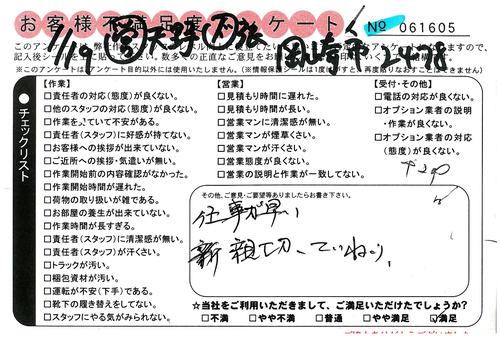 お客様不満足度アンケート
No 061605
7/19
岡崎市
※このアンケートはアンケート目的以外には使用いたしません。
チェックリスト
【作業】
□責任者の対応(態度)が良くない。
□他のスタッフの対応(態度)が良くない。
□作業をしていて不安がある。
□責任者(スタッフ)に好感が持てない。
□お客様への挨拶が出来ていない。
□ご近所への挨拶・気遣いが無い。
□作業開始前の内容確認がなかった。
□作業開始時間が遅れた。
□荷物の取り扱いが雑である。
□お部屋の養生が出来ていない。
□作業時間が長すぎる。
□責任者(スタッフ)に清潔感が無い。
□責任者(スタッフ)が汗くさい。
□トラックが汚い。
□梱包資材が汚い。
□運転が不安(下手)である。
□靴下の履き替えをしてない。
□スタッフにやる気がみられない。
【営業】
□見積もり時間に遅れた。
□見積もり時間が長い。
□営業マンに清潔感が無い。
□営業マンが煙草くさい。
□営業マンが汗くさい。
□営業態度が良くない。
□営業の説明と作業が一致してない。
【受付・その他】
□電話の対応が良くない。
□オプション業者の説明
・作業が良くない。
□オプション業者の対応
(態度)が良くない。
その他、ご意見・ご要望等ありましたらお書き下さい。
仕事が早い
親切、ていねい
☆当社をご利用いただきまして、ご満足いただけたでしょうか?
□不満 □やや不満 □普通 □やや満足 ☑満足